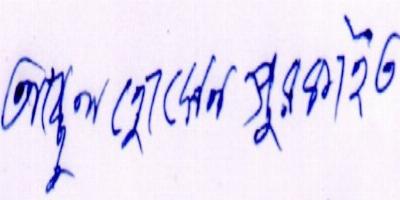 আব্দুল হোসেন পুরকাইত